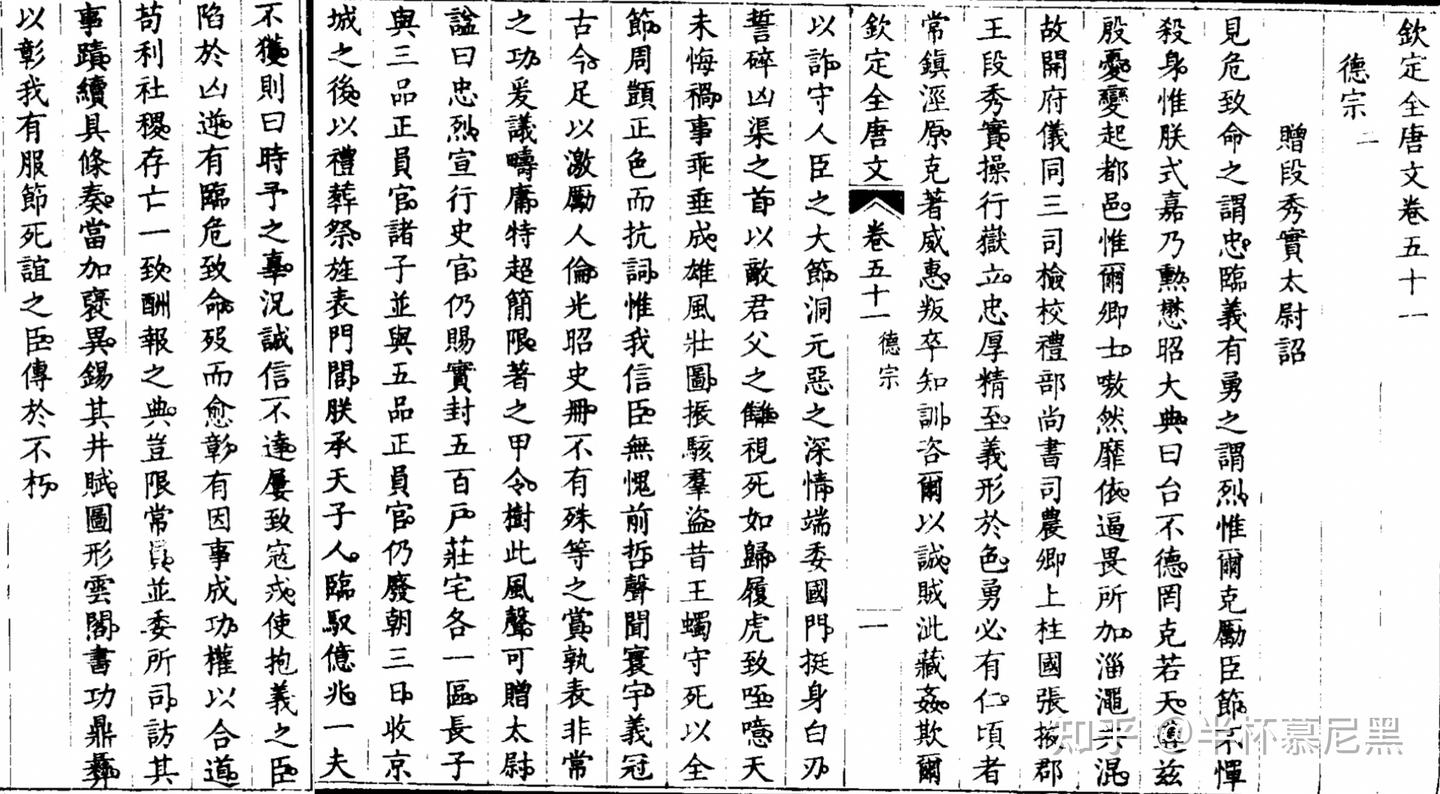 欽定全唐文卷五十一
德宗二
贈段秀實太尉詔
見危致命之謂忠臨義有勇之謂烈惟爾克勵臣節不憚
殺身惟朕式嘉乃勲懋昭大典曰台不德罔克若天遘兹
殷憂變起都邑惟爾卿士嗷然靡依逼畏所加淄澠共混
故開府儀同三司檢校禮部尚書司農卿上柱國張掖郡
王段秀實操行嶽立忠厚精至義形於色勇必有仁頃者
常鎮涇原克著威惠叛卒知訓咨爾以誠賊泚藏姦欺爾
欽定全唐文 卷五十一 德宗 一
以詐守人臣之大節洞元惡之深情端委國門挺身白刃
誓碎凶渠之首以敵君父之讎視死如歸履虎致咥噫天
未悔禍事乖垂成雄風壯圖振駭羣盜昔王蠋守死以全
節周顗正色而抗詞惟我信臣無愧前哲聲聞寰宇義冠
古今足以激勵人倫光昭史冊不有殊等之賞孰表非常
之功爰議疇庸特超簡限著之甲令樹此風聲可贈太尉
諡曰忠烈宣行史官仍賜實封五百戸莊宅各一區長子
與三品正員官諸子並與五品正員官仍廢朝三日收京
城之後以禮葬祭旌表門閭朕承天子人臨馭億兆一夫
不獲則曰時予之辜況誠信不達屢致寇戎使抱義之臣
陷於凶逆有臨危致命歿而愈彰有因事成功權以合道
苟利社稷存亡一致酬報之典豈限常員並委所司訪其
事蹟續具條奏當加襃異錫其井賦圖形雲閣書功鼎彝
以彰我有服節死誼之臣傳於不朽
知乎 @半杯慕尼黑